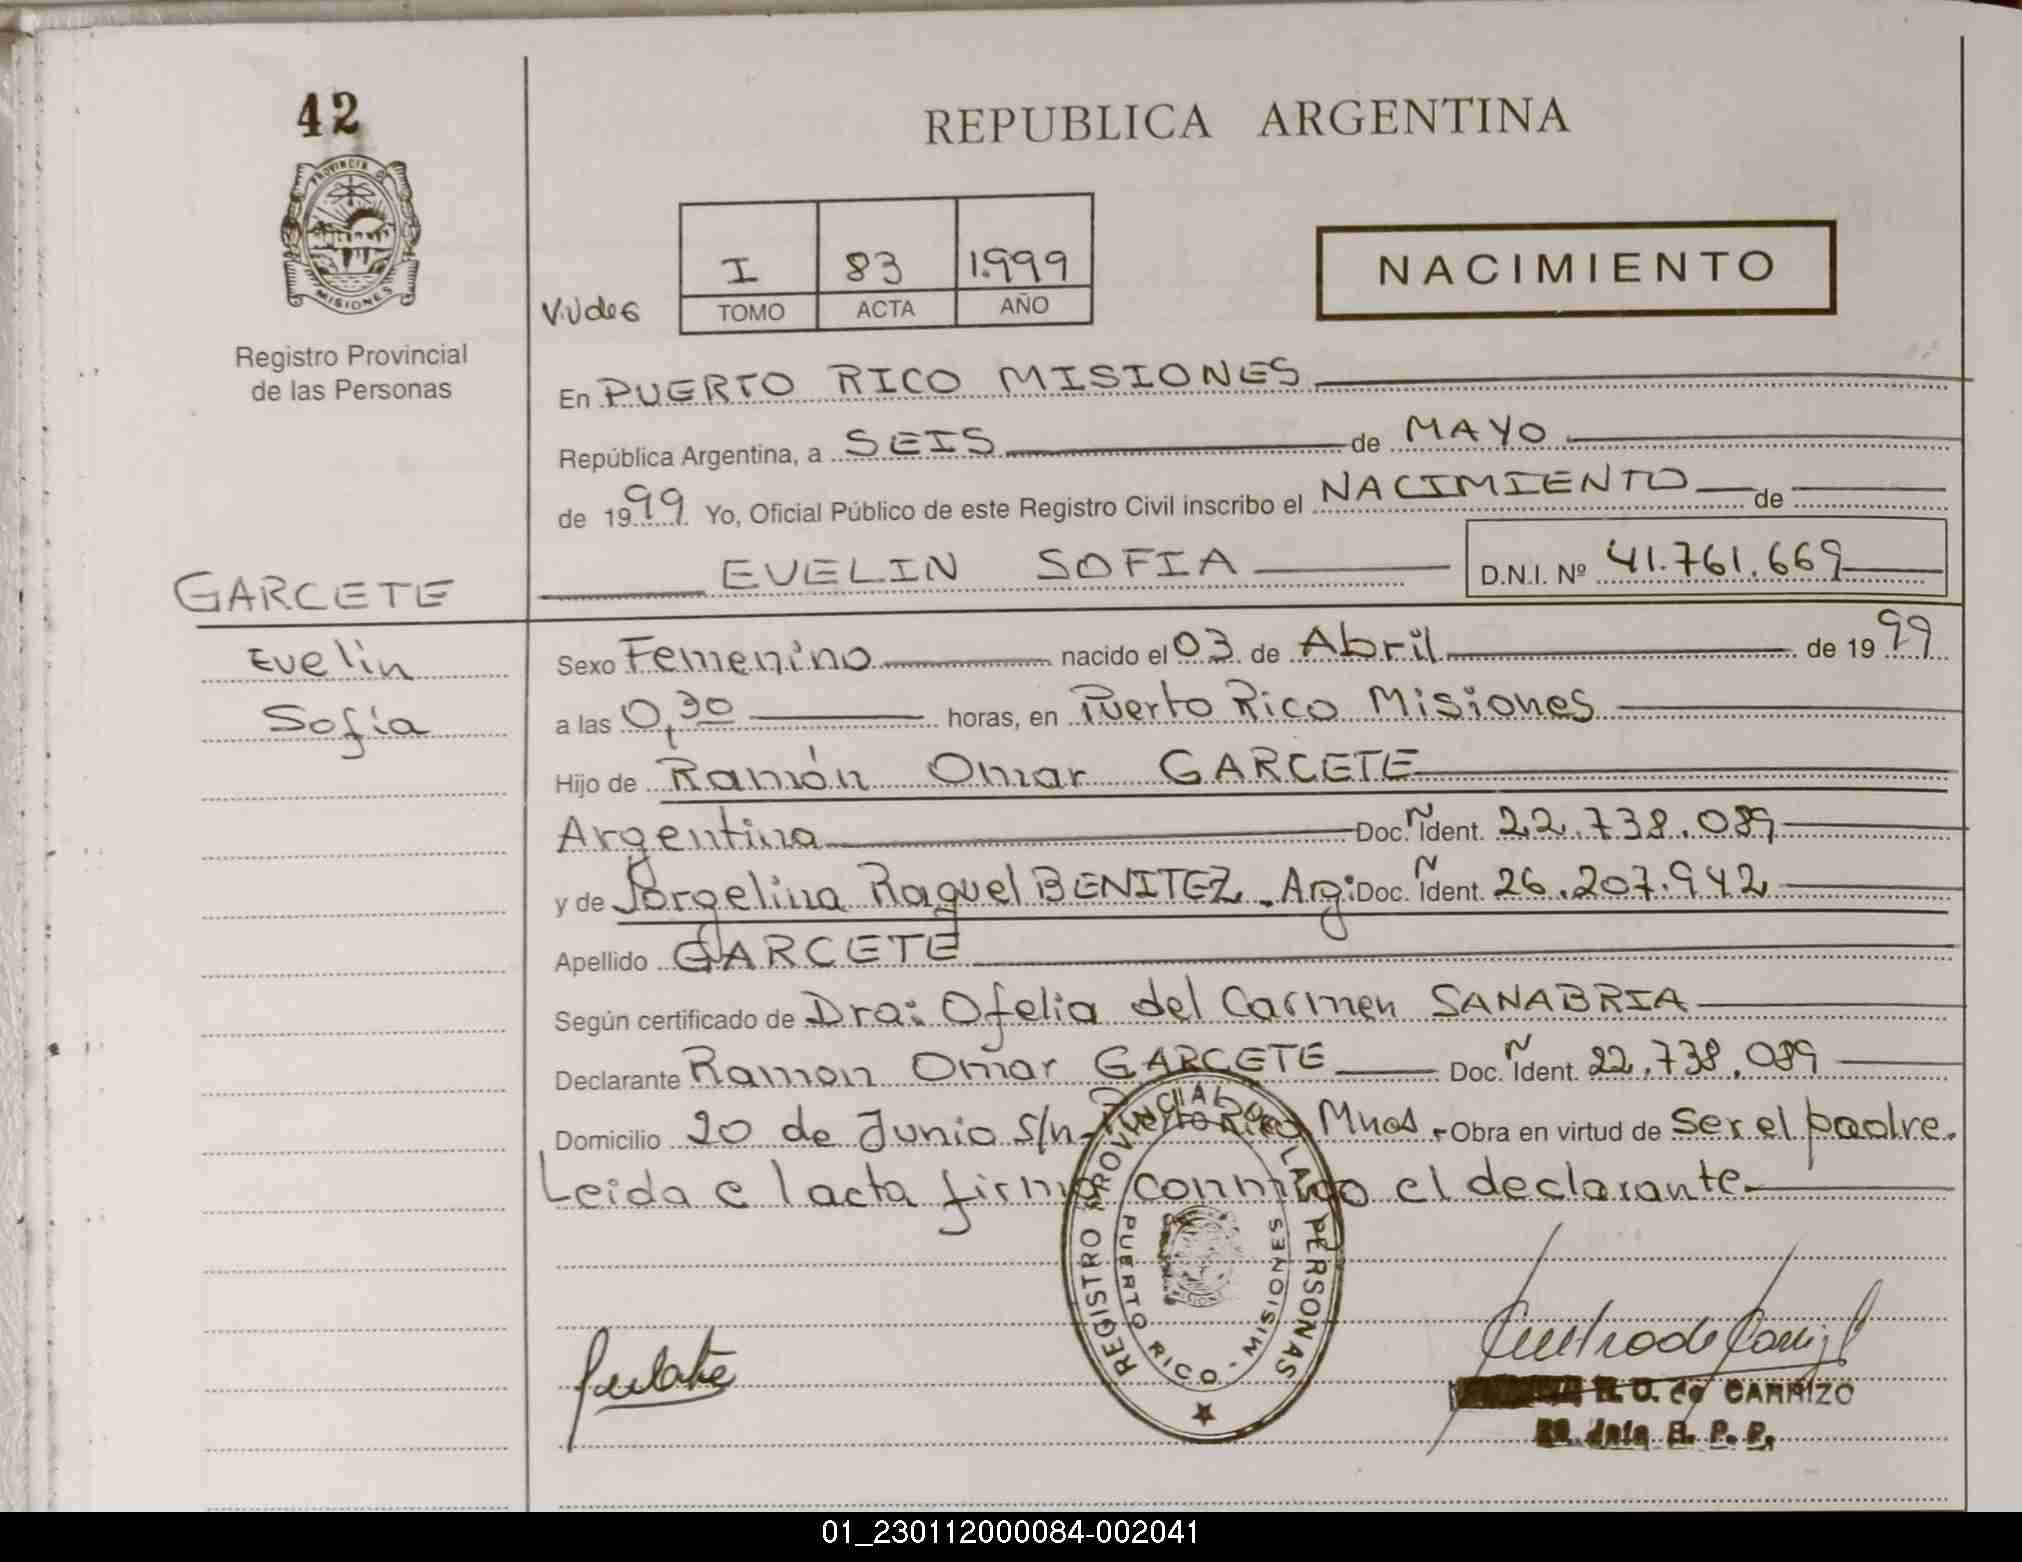 42
PROVINCIA DE
MISIONES
Registro Provincial
de las Personas
REPUBLICA ARGENTINA
I 83 1.999
TOMO ACTA AÑO
NACIMIENTO
En PUERTO RICO MISIONES
República Argentina, a SEIS de MAYO
de 1999 Yo, Oficial Público de este Registro Civil inscribo el NACIMIENTO de
EVELIN SOFIA D.N.I. Nº 41.761.669
GARCETE
Evelin
Sofía
Sexo Femenino nacido el 03 de Abril de 1999
a las 0,30 horas, en Puerto Rico Misiones
Hijo de Ramón Omar GARCETE
Argentina Doc. Ident. 22.738.089
y de Jorgelina Raquel BENITEZ. Arg: Doc. Ident. 26.207.942
Apellido GARCETE
Según certificado de Dra: Ofelia del Carmen SANABRIA
Declarante Ramon Omar GARCETE Doc. Ident. 22.738.089
Domicilio 20 de Junio s/n Puerto Rico Mnes. Obra en virtud de ser el padre.
Leida e l acta firma conmigo el declarante.
REGISTRO PROVINCIAL DE LAS PERSONAS
PUERTO RICO - MISIONES
de CARRIZO
R. P. P.
01_230112000084-002041